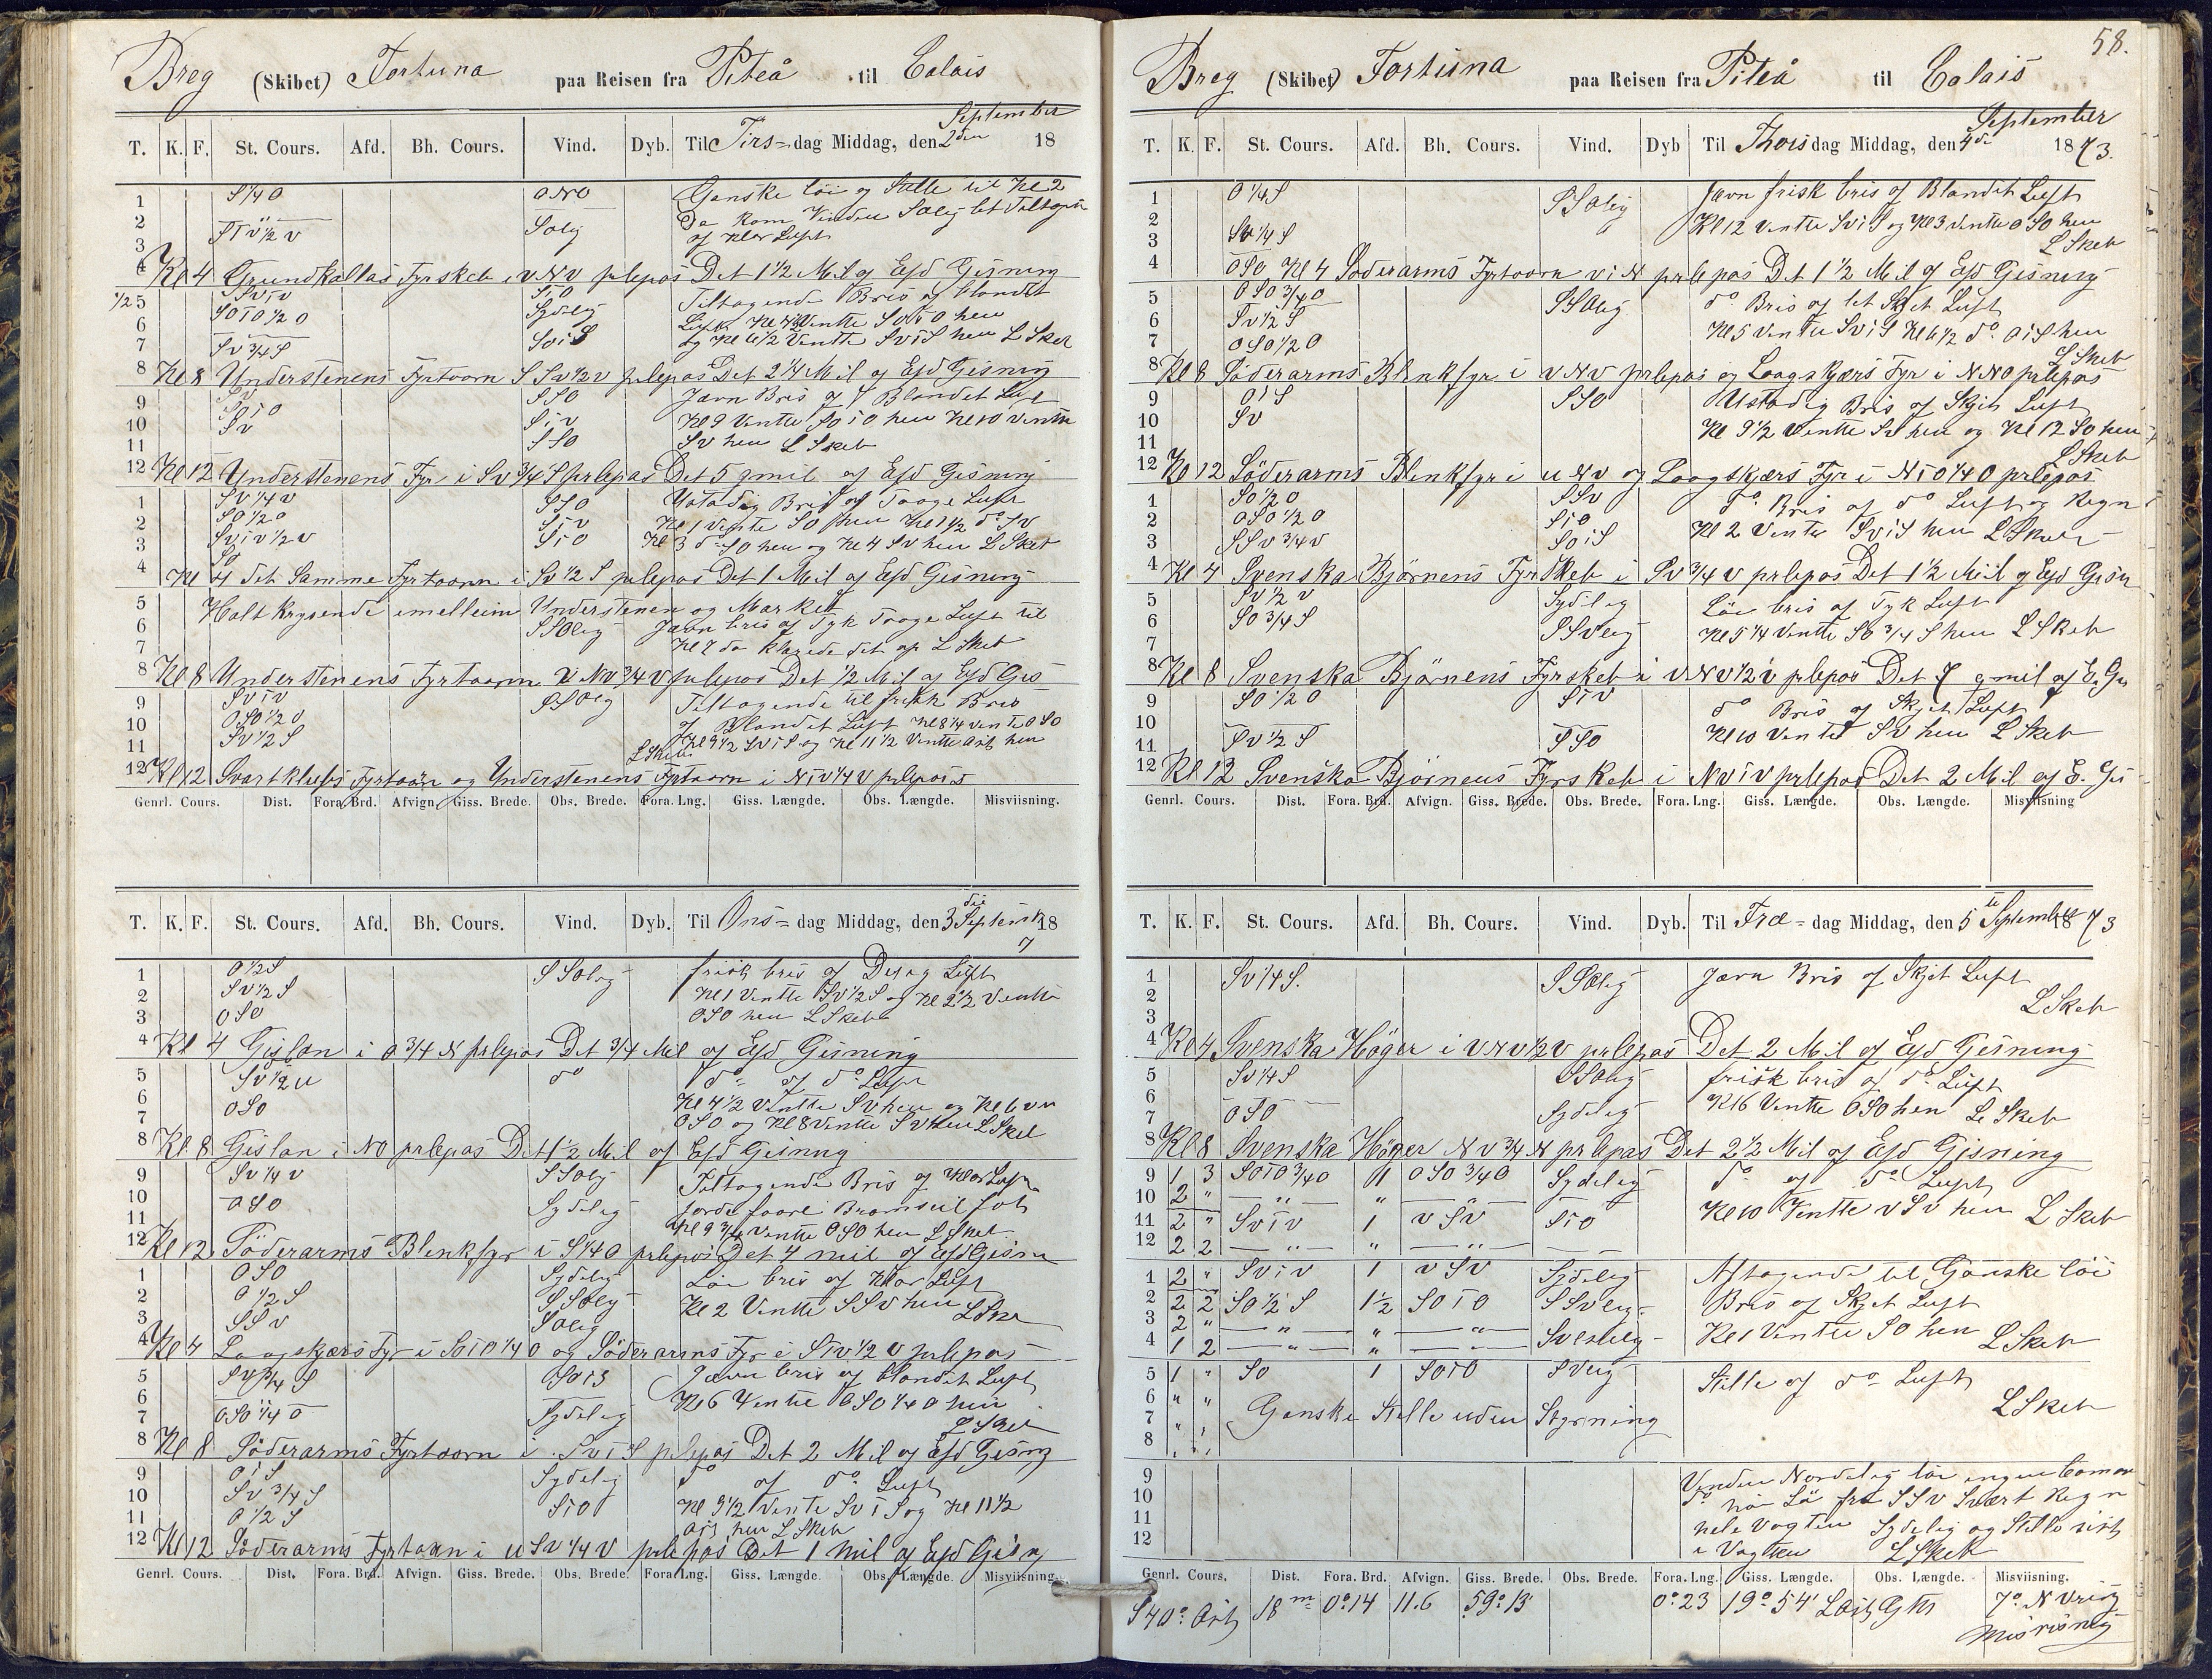 Breg (Skibet) Fortuna paa Reisen fra Piteå til Calais
T. K. F. St. Cours. Afd. Bh. Cours. Vind. Dyb. Til Tirs= dag Middag, den 2den September 18
1 S 1/4 O ONO Ganske löi og Stille til Kl 2
2 Da kom Vinden SOlig let Tiltagen
3 SOlig af klar Luft
4 Kl 4 Grundkallas Fyrskeb i VNV prlepas Det 1 1/2 Mil af Efd Gisning
5 SViV SiO Tiltagende Bris af blandet
6 SOiO 1/2 O Sydlig Luft Ventte SOiO hen
7 SV 3/4 S SViS og Kl 6 1/2 Ventte SViS hen L Skeb
8 Kl 8 Understenens Fyrtaarn SSV 1/2 V prlepas Det 2 1/4 Mil af Efd Gisning
9 SV SSO Jævn Bris af Blandet Luft
10 SOiO SiV Kl 9 Ventte SOiO hen Kl 10 Ventte
11 SV SSO SV hen L Skeb
12 Kl 12 Understenens Fyr i SV 3/4 S prlepas Det 5 qmil af Efd Gisning
1 SV 1/4 V SSO Ustadig Bris af Taage Luft
2 SO 1/2 O SiV Kl 1 Vente SO hen Kl 1 1/2 do SV
3 SViV 1/2 V SiO Kl 3 do SO hen og Kl 4 SV hen L Skeb
4 SO Kl 4 det Samme Fyrtaarn i SV 1/2 S prlepas Det 1 Mil af Efd Gisning
5 Holt Krysende imelleim Understenen og Market
6 SSOlig Jævn bris af Tyk Taage Luft til
7 Kl 7 da klarede det op L Skeb
8 Kl 8 Understenens Fyrtaarn V NV 3/4 V prlepas Det 1/2 Mil af Efd Gis
9 SViV SSOlig Tiltagende til frisk Bris
10 OSO 1/2 O af Blandet Luft Kl 8 1/4 vente OSO
11 SV 1/2 S Kl 9 1/2 SViS og Kl 11 1/2 Ventte Öst hen
L Skeb
12 Kl 12 Svartklubs Fyrtaarn og Understenens Fyrtaarn i NiV 1/4 V prlepas
Genrl. Cours. Dist. Fora. Brd. Afvign. Giss. Brede. Obs. Brede. Fora. Lng. Giss. Længde. Obs. Længde. Misviisning.
T. K. F. St. Cours. Afd. Bh. Cours. Vind. Dyb. Til Ons= dag Middag, den 3die September 18
7
1 O 1/2 S SSOlig frisk bris af Luft
2 SV 1/2 S Kl 1 Ventte SV 1/2 S og Kl 2 1/2 Ventte
3 OSO OSO hen L Skeb
4 Kl 4 Gislan i O 3/4 N prlepas Det 3/4 Mil af Efd Gisning
5 SV 1/2 V do do af do Luft
6 Kl 4 1/2 Ventte SV hen og Kl 6 ven
7 OSO OSO og Kl 8 Ventte SV hen L Skeb
8 Kl 8 Gislan i NO prlepas Det 1/2 Mil af Efd Gisning
9 SV 1/4 V SSOlig Tiltagende Bris af klar Luft
10 OSO Sydelig Bramseil
11 Kl 9 3/4 Ventte OSO hen L Skeb
12 Kl 12 Söderarms Blenkfyr i S 1/4 O prlepas Det 4 mil af Efd Gisn
1 OSO Sydelig Löie bris af klar Luft
2 O 1/2 S SSOlig Kl 2 Ventte SSV hen L Skeb
3 SSV SOlig
4 Kl 4 Laagskjærs Fyr i SOiO 1/4 O og Söderarms Fyr i SiV 1/2 V prlepas
5 SV 3/4 S OSOiS Jævn bris af blandet Luft
6 Kl 6 Ventte OSO 1/4 O hen
7 OSO 1/4 O Sydelig L Skeb
8 Kl 8 Söderarms Fyrtaarn i SViS prlepas Det 2 Mil af Efd Gisng
9 OiS Sydelig do af do Luft
10 SV 3/4 S SiO Kl 9 1/2 Vente SViS og Kl 11 1/2
11 O 1/2 S OiS hen L Skeb
12 Kl 12 Söderarms Fyrtaarn i VSV 1/4 V prlepas Det 1 mil af Efd Gisn
Genrl. Cours. Dist. Fora. Brd. Afvign. Giss. Brede. Obs. Brede. Fora. Lng. Giss. Længde. Obs. Længde. Misviisning.
58.
Breg (Skibet) Fortuna paa Reisen fra Piteå til Calais
T. K. F. St. Cours. Afd. Bh. Cours. Vind. Dyb Til Thors dag Middag, den 4de September 1873.
1 O 1/4 S SSOlig Jævn frisk bris af Blandet Luft
2 Kl 12 Ventte SViS og Kl 3 Ventte OSO hen
3 SV 1/4 S L Skeb
4 OSO Kl 4 Söderarms Fyrtaarn ViN prlepas Det 1 1/2 Mil af Efd Gisning
5 OSO 3/4 O SSOlig do Bris af let Skjet Luft
6 SV 1/2 S Kl 5 Ventte SViS Kl 6 1/2 do OiS hen
7 OSO 1/2 O L Skeb
8 Kl 8 Söderarms Blenkfyr i VNV prlepas og Laagskjærs Fyr i NNO prlepas
9 OiS SSO Ustadig Bris af Skjet Luft
10 SV Kl 9 1/2 Ventte SV hen og Kl 12 SO hen
11 L Skeb
12 Kl 12 Söderarms Blenkfyr i VNV og Laagskjærs Fyr i NiO 1/4 O prlepas
1 SO 1/2 O SSV do Bris af do Luft og Regn
2 OSO 1/2 O SiO Kl 2 Vente SViS hen L Skeb
3 SSV 3/4 V SOiS
4 Kl 4 Svenska Björnens Fyrskeb i SV 3/4 V prlepas Det 1 1/2 Mil af Efd Gisn
5 SV 1/2 V Sydelig Löie bris af Tyk Luft
6 SO 3/4 S SSVlig Kl 5 1/4 Ventte SO 3/4 S hen L Skeb
7
8 Kl 8 Svenska Björnens Fyrskeb i VNV 1/2 V prlepas Det 7 qmil af E. Gis
9 SO 1/2 O SiV do Bris af Skjet Luft
10 Kl 10 Ventte SV hen L Skeb
11 SV 1/2 S SSO
12 Kl 12 Svenska Björnens Fyrskeb i NViV prlepas Det 2 Mil af E. Gis
Genrl. Cours. Dist. Fora. Brd. Afvign. Giss. Brede. Obs. Brede. Fora. Lng. Giss. Længde. Obs. Længde. Misviisning
T. K. F. St. Cours. Afd. Bh. Cours. Vind. Dyb. Til Fre= dag Middag, den 5te September 1873
1 SV 1/4 S. SSOlig Jævn Bris af Skjet Luft
2 L Skeb
3
4 Kl 4 Svenska Höger i VNV 1/2 V prlepas Det 2 Mil af Efd Gisning
5 SV 1/4 S SSOlig frisk bris af do Luft
6 Kl 6 Ventte OSO hen L Skeb
7 OSO Sydelig
8 Kl 8 Svenska Höger NV 3/4 N prlepas Det 2 1/2 Mil af Efd Gisning
9 1 3 SOiO 3/4 O 1 OSO 3/4 O Sydelig do af do Luft
10 2 " — " — " — " — Kl 10 Ventte VSV hen L Skeb
11 2 " SViV 1 VSV SiO
12 2 2 — " — " — " — —
1 2 " SViV 1 VSV Sydelig Aftagende til Ganske löi
2 2 2 SO 1/2 S 1 1/2 SOiO SSVlig Bris af Skjet Luft
3 2 " — " — " — " — Kl 1 Ventte SO hen
4 1 2 — " — " — " — SVestlig L Skeb
5 1 " SO 1 SOiO SVlig Stille af do Luft
6 " " Ganske Stille uden Styrning L Skeb
7 " "
8 " "
9 Vinden Nordelig löie
10 fra SSV Svært Regn
11 hele Vagten Sydelig og Stille sist
12 i Vagten L Skeb
Genrl. Cours. Dist. Fora. Brd. Afvign. Giss. Brede. Obs. Brede. Fora. Lng. Giss. Længde. Obs. Længde. Misviisning.
S 40° Öst 18 m 0°14 11.6 59°13' 0°23 19°54' L Öst Gr 7° N Vrig
Misvisning